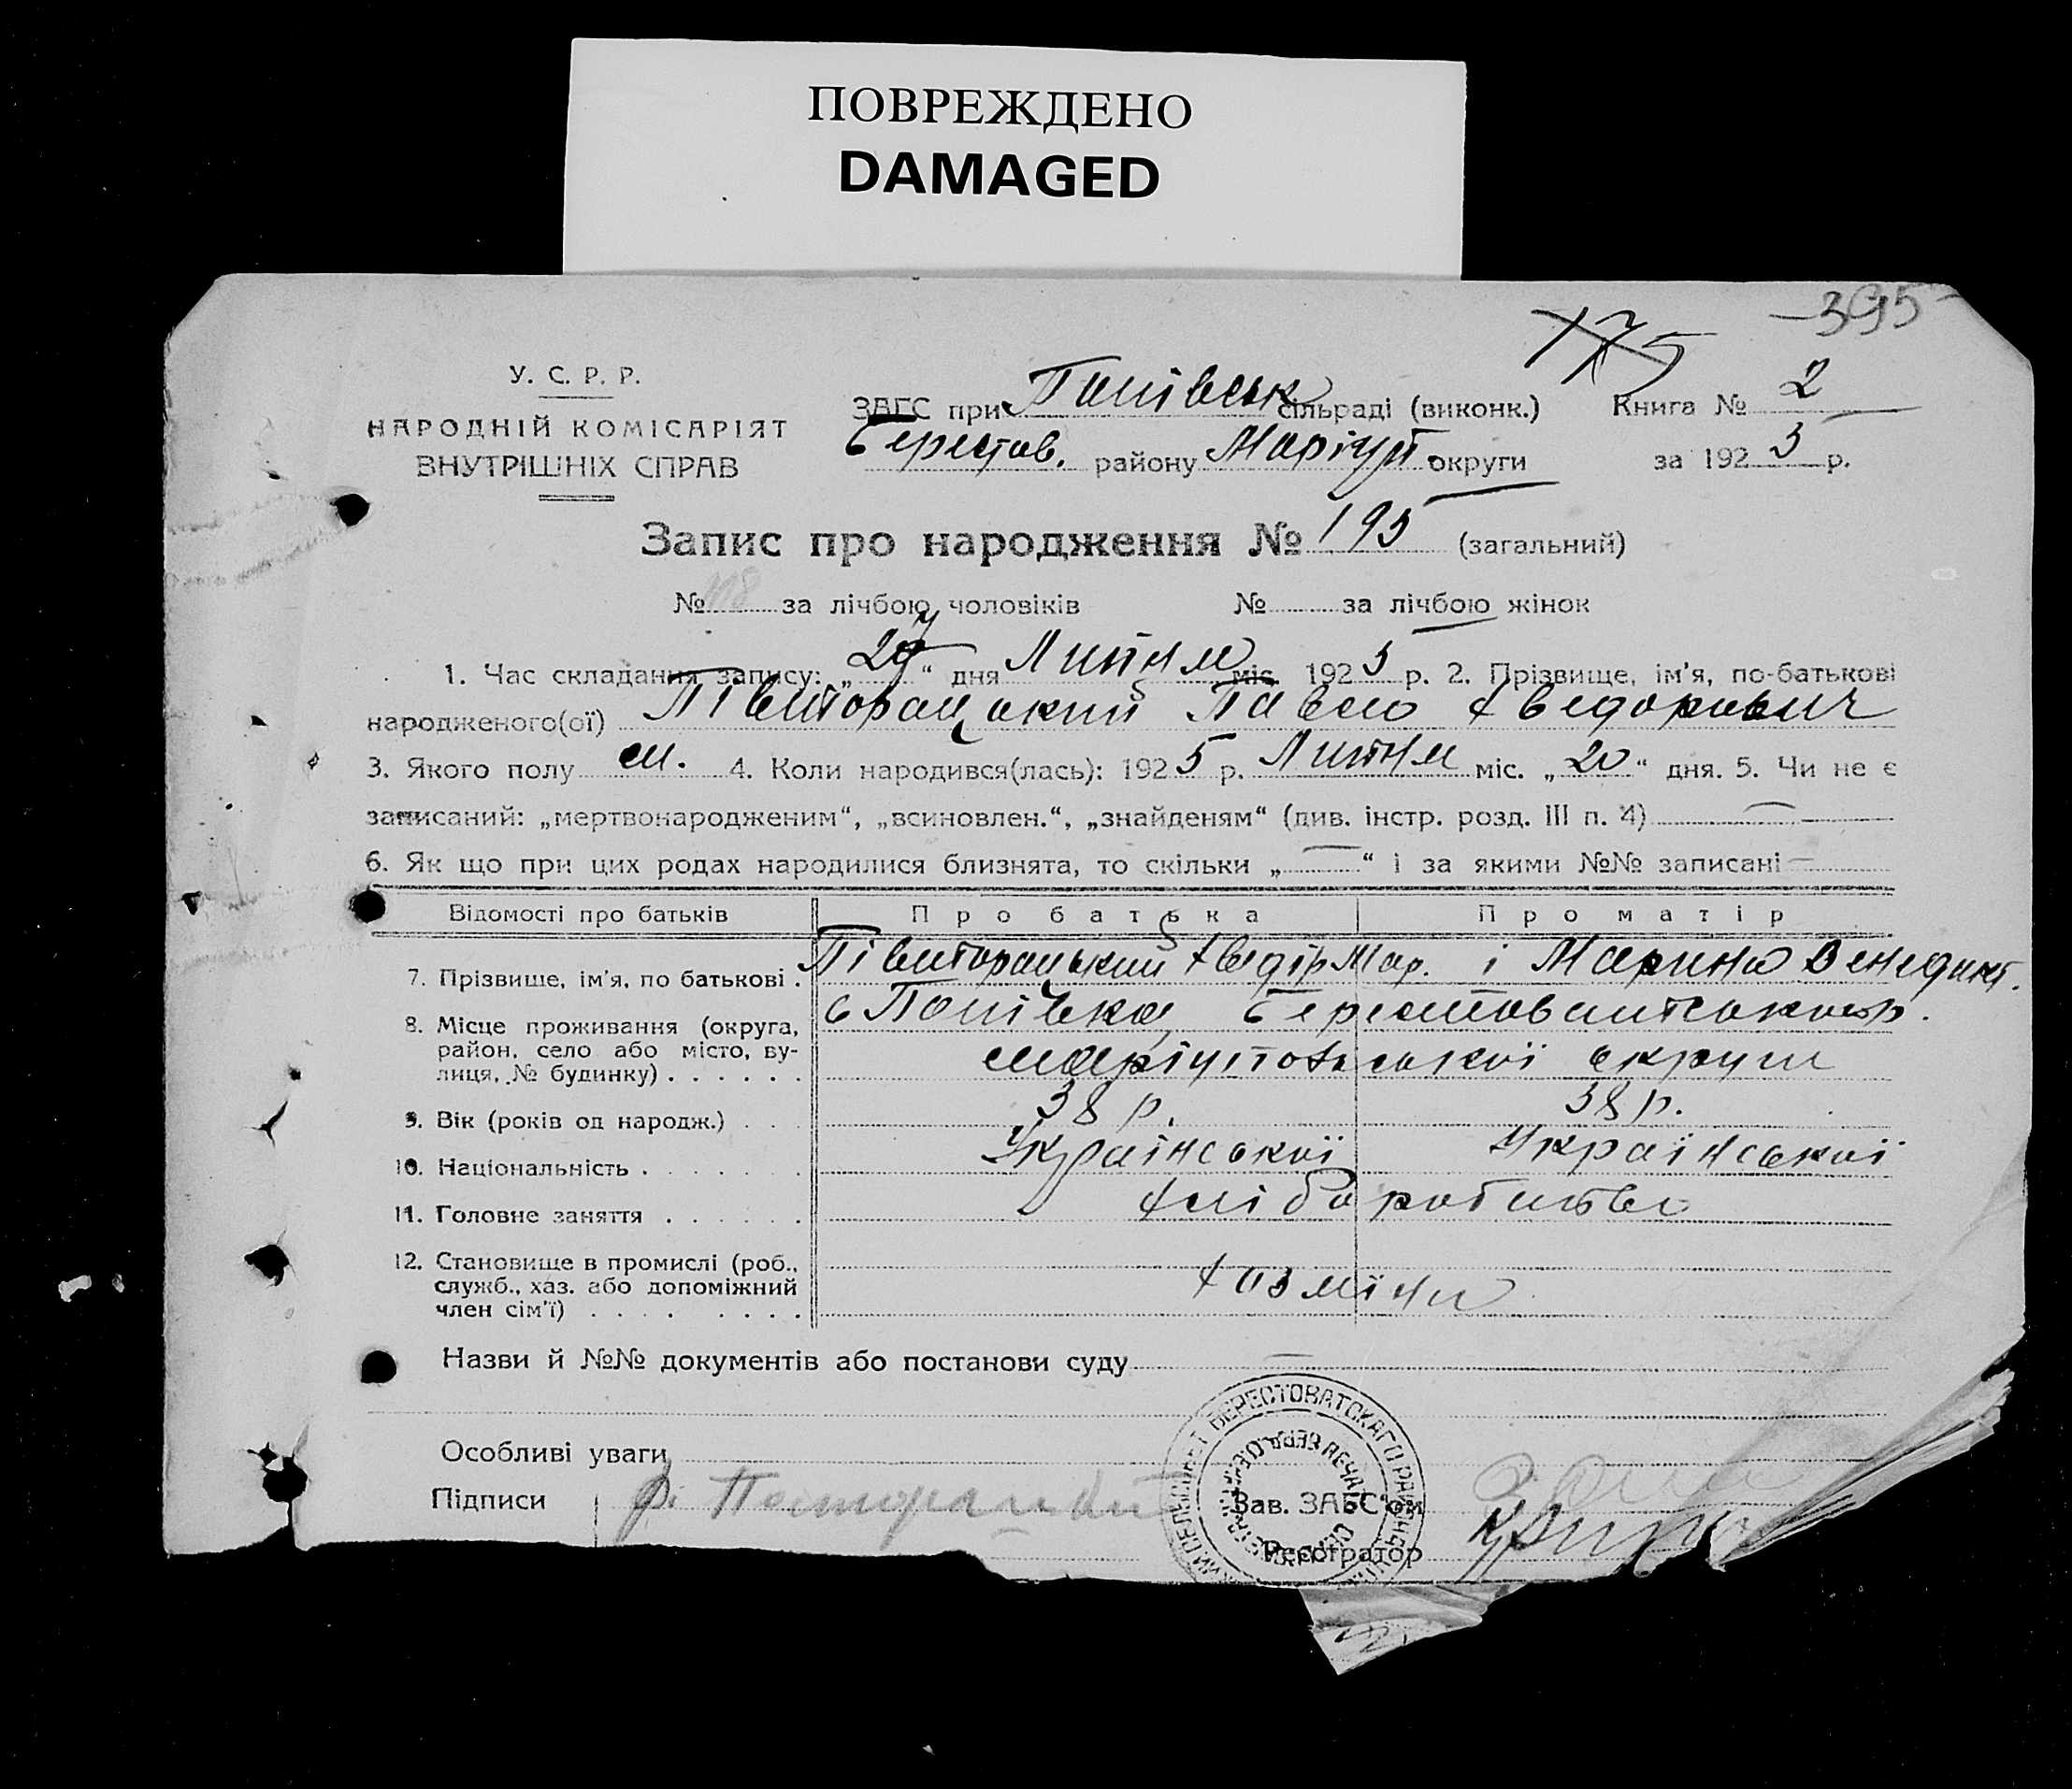 ПОВРЕЖДЕНО
DAMAGED
175 -395-
У. С. Р. Р.
НАРОДНІЙ КОМІСАРІЯТ
ВНУТРІШНІХ СПРАВ
ЗАГС при Попівськ сільраді (виконк.) Книга № 2
Берестов. району Маріуп. округи за 1925 р.
Запис про народження № 195 (загальний)
№ 108 за лічбою чоловіків № за лічбою жінок
1. Час складання запису: „27“ дня Липня міс. 1925 р. 2. Прізвище, ім'я, по-батькові
народженого(ої) Півторацький Павло Хведорович
3. Якого полу м. 4. Коли народився(лась): 1925 р. Липня міс. „20“ дня. 5. Чи не є
записаний: „мертвонародженим“, „всиновлен.“, „знайденям“ (див. інстр. розд. III п. 4) —
6. Як що при цих родах народилися близнята, то скільки „—“ і за якими №№ записані —
Відомості про батьків Про батька Про матір
7. Прізвище, ім'я, по батькові . Півторацький Хведір Мар. і Марина Венедикт.
8. Місце проживання (округа, район, село або місто, вулиця, № будинку) . . . . . . с Попівка, Берестов
Маріупольської округи
9. Вік (років од народж.) . . . 38 р. 38 р.
10. Національність . . . . . . . Української Української
11. Головне заняття . . . . . . Хліборобство
12. Становище в промислі (роб., служб., хаз. або допоміжний член сім'ї) . . . . . . . . Хазяїни
Назви й №№ документів або постанови суду —
Особливі уваги
Підписи Ф. Зав. ЗАГС'ом
Реєстратор
БЕРЕСТОВАТСКАГО